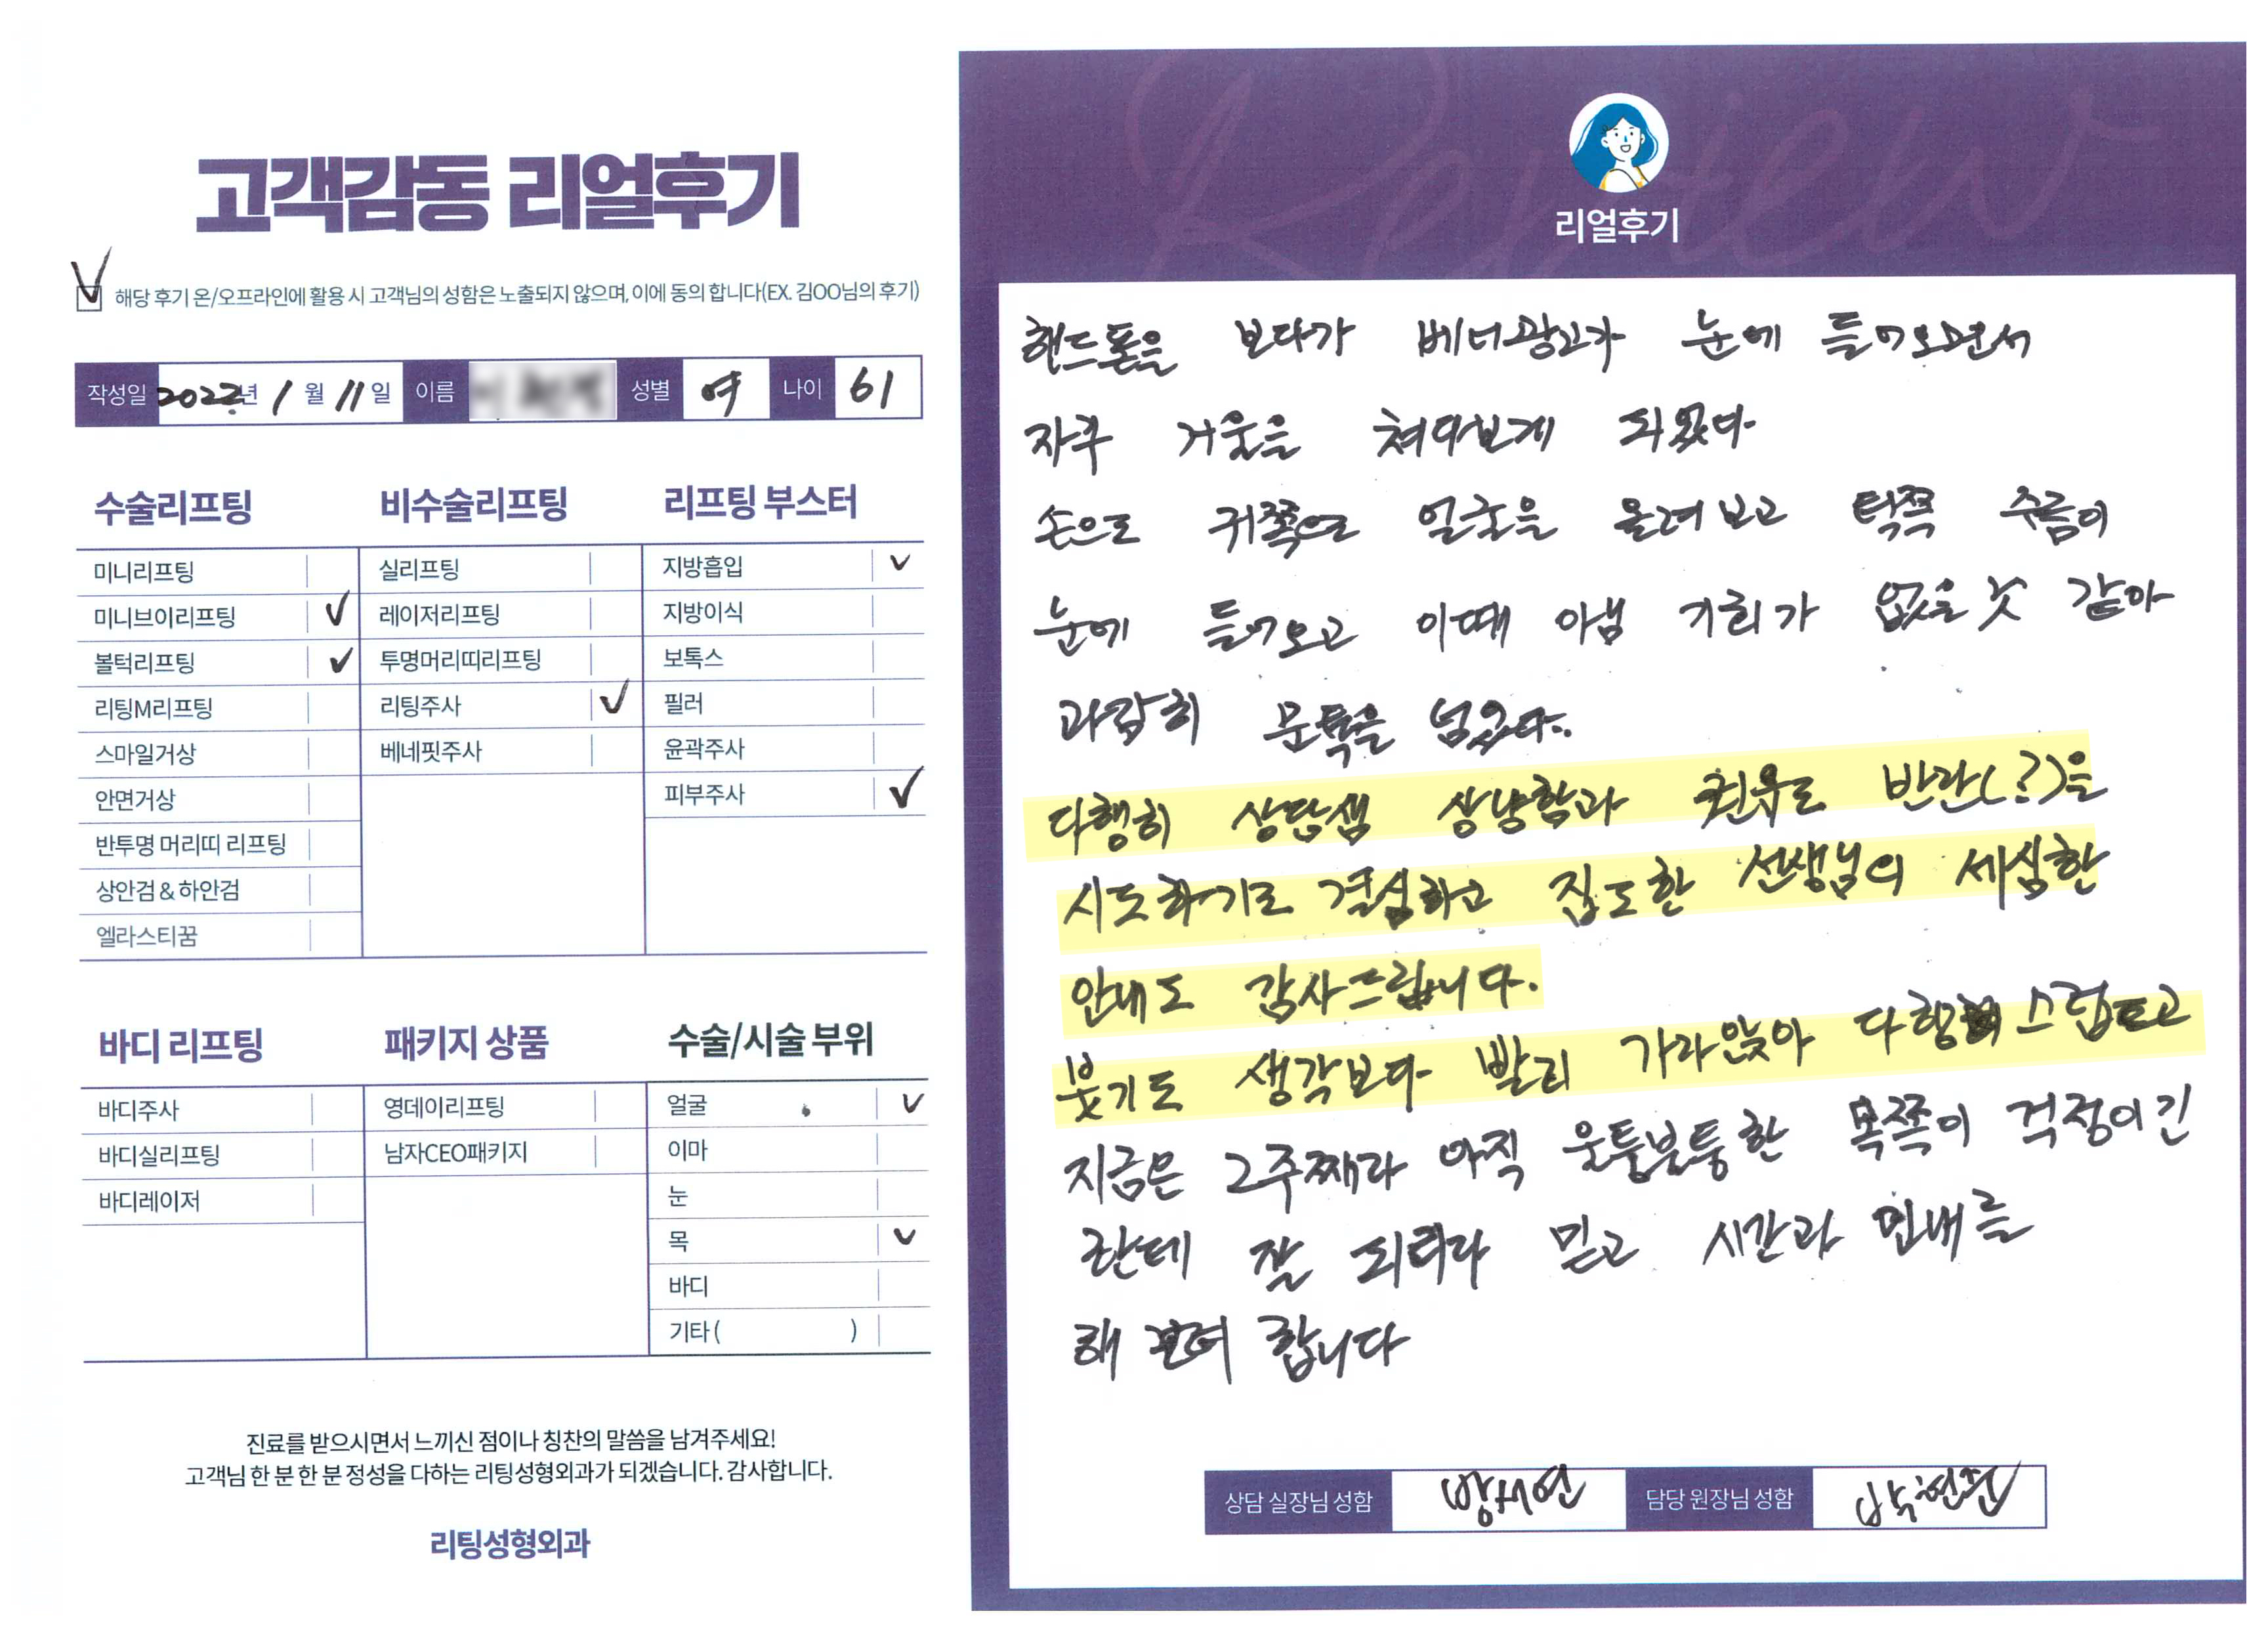 고객감동 리얼후기
해당 후기 온/오프라인에 활용 시 고객님의 성함은 노출되지 않으며, 이에 동의 합니다(EX. 김OO님의 후기)
작성일 2022년 1월 11일 이름 성별 여 나이 61
수술리프팅 비수술리프팅 리프팅 부스터
미니리프팅 실리프팅 지방흡입 ✓
미니브이리프팅 ✓ 레이저리프팅 지방이식
볼턱리프팅 ✓ 투명머리띠리프팅 보톡스
리팅M리프팅 리팅주사 ✓ 필러
스마일거상 베네핏주사 윤곽주사
안면거상 피부주사 ✓
반투명 머리띠 리프팅
상안검 & 하안검
엘라스티꿈
바디 리프팅 패키지 상품 수술/시술 부위
바디주사 영데이리프팅 얼굴 ✓
바디실리프팅 남자CEO패키지 이마
바디레이저 눈
목 ✓
바디
기타 ( )
진료를 받으시면서 느끼신 점이나 칭찬의 말씀을 남겨주세요!
고객님 한 분 한 분 정성을 다하는 리팅성형외과가 되겠습니다. 감사합니다.
리팅성형외과
Review
리얼후기
핸드폰을 보다가 베너광고가 눈에 들어오면서
자주 거울을 쳐다보게 되었다
손으로 귀쪽으로 얼굴을 올려보고 턱쪽 주름이
눈에 들어오고 이때 아님 기회가 없을 것 같아
과감히 문턱을 넘었다.
다행히 상담샘 상냥함과 권유로 반란(?)을
시도하기로 결심하고 집도한 선생님의 세심한
안내도 감사드립니다.
붓기도 생각보다 빨리 가라앉아 다행스럽고
지금은 2주째라 아직 울퉁불퉁한 목쪽이 걱정이긴
한데 잘 되리라 믿고 시간과 인내를
해 보려 합니다
상담 실장님 성함 방서연 담당 원장님 성함